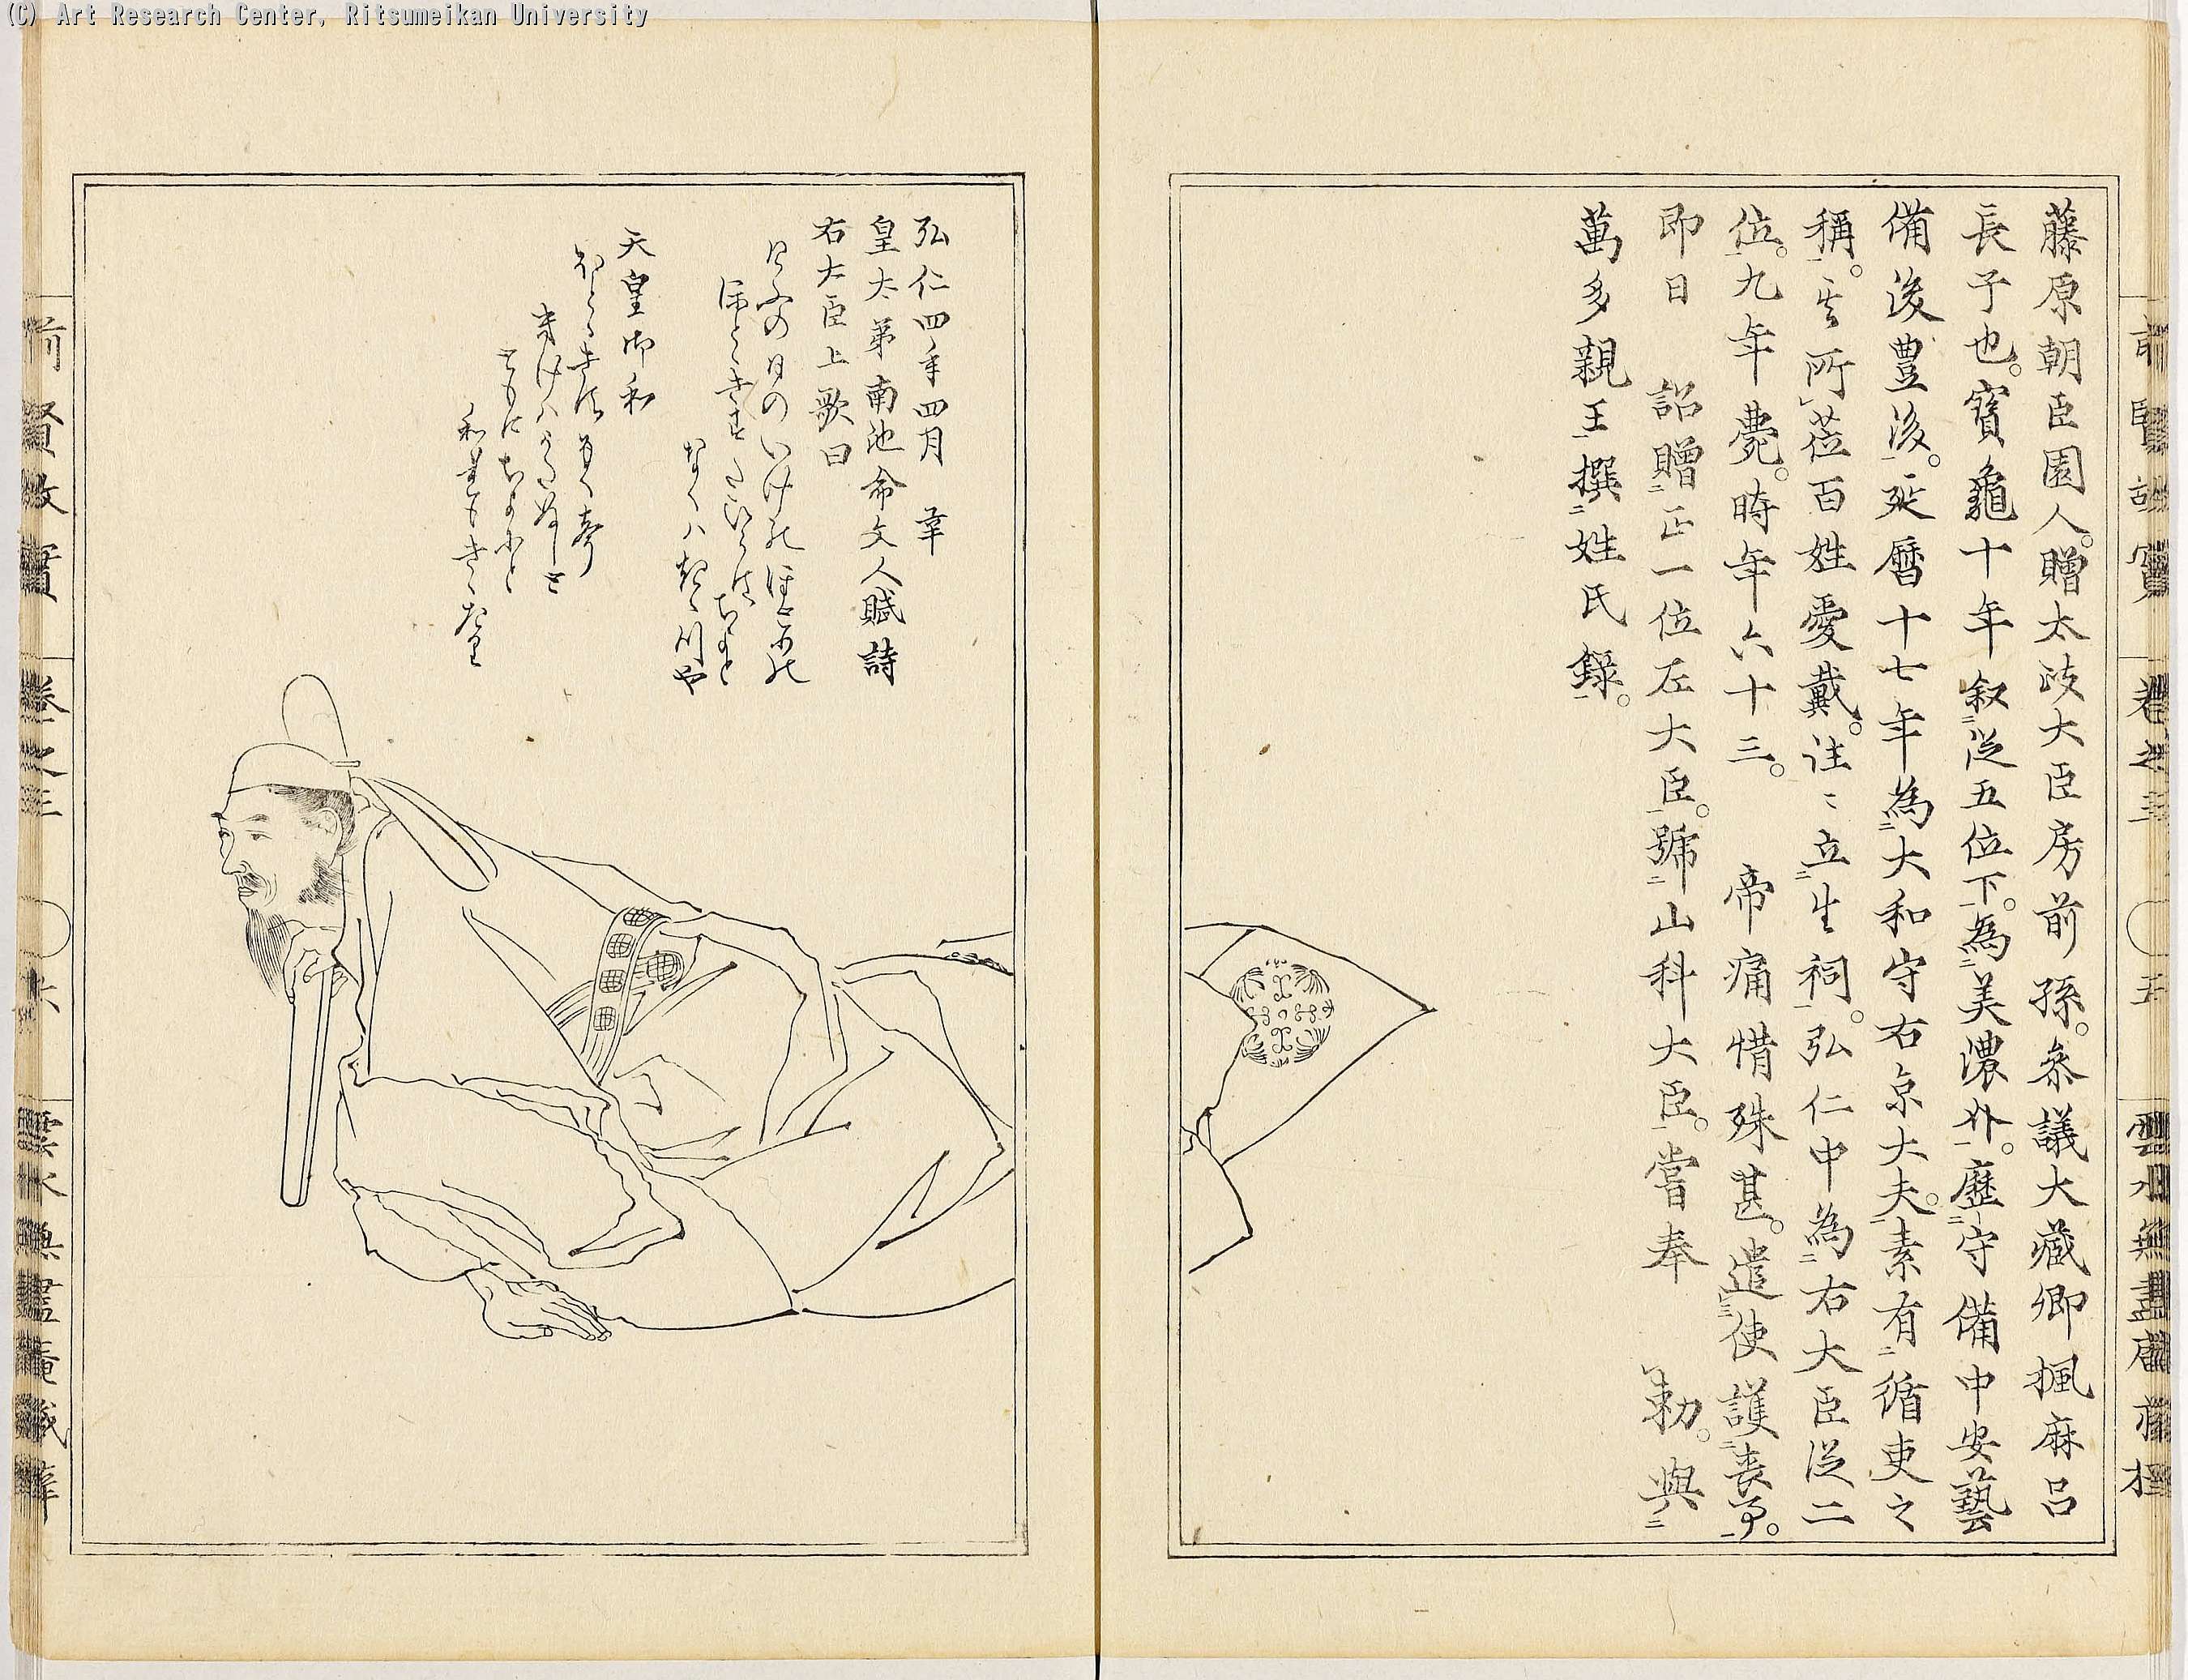 (C) Art Research Center, Ritsumeikan University
前賢故實 卷之三 五 雲水無盡庵藏
藤原朝臣園人。贈太政大臣房前孫。參議大藏卿楓麻呂
長子也。寳龜十年叙二從五位下一。為二美濃介一。歷二守備中安藝
備後豊後一。延暦十七年為二大和守右京大夫一。素有二循吏之
稱一。其所莅百姓愛戴。往々立二生祠一。弘仁中為二右大臣從二
位一。九年薨。時年六十三。 帝痛惜殊甚。遣三使護二喪事一。
即日 詔贈二正一位左大臣一。號二山科大臣一。嘗奉 勅。與二
萬多親王一撰二姓氏録一。
弘仁四年四月 幸
皇太弟南池命文人賦詩
右大臣上歌曰
けふの日のいけのほとりに
ほとゝきす たひらは ちよと
なくは きゝつや
天皇御和
ほとゝきす なく聲
きけは うたぬしと
ともに ちよにと
われもきゝたり
前賢故實 卷之三 六 雲水無盡庵藏